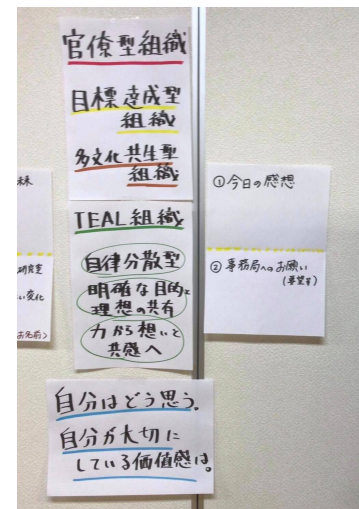 官僚型組織
目標達成型
組織
多文化共生型
組織
TEAL組織
自律分散型
明確な目的と
理想の共有
力から想いと
共感へ
自分はどう思う。
自分が大切に
している価値感は。
①今日の感想
②事務局へのお願い
(要望等)
研究室
い変化
お名前>